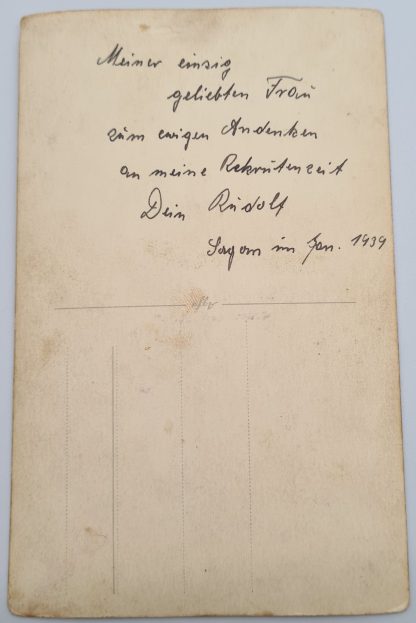 Meiner einzig
geliebten Frau
zum ewigen Andenken
an meine Rekrutenzeit
Dein Rudolf
Sagan im Jan. 1939